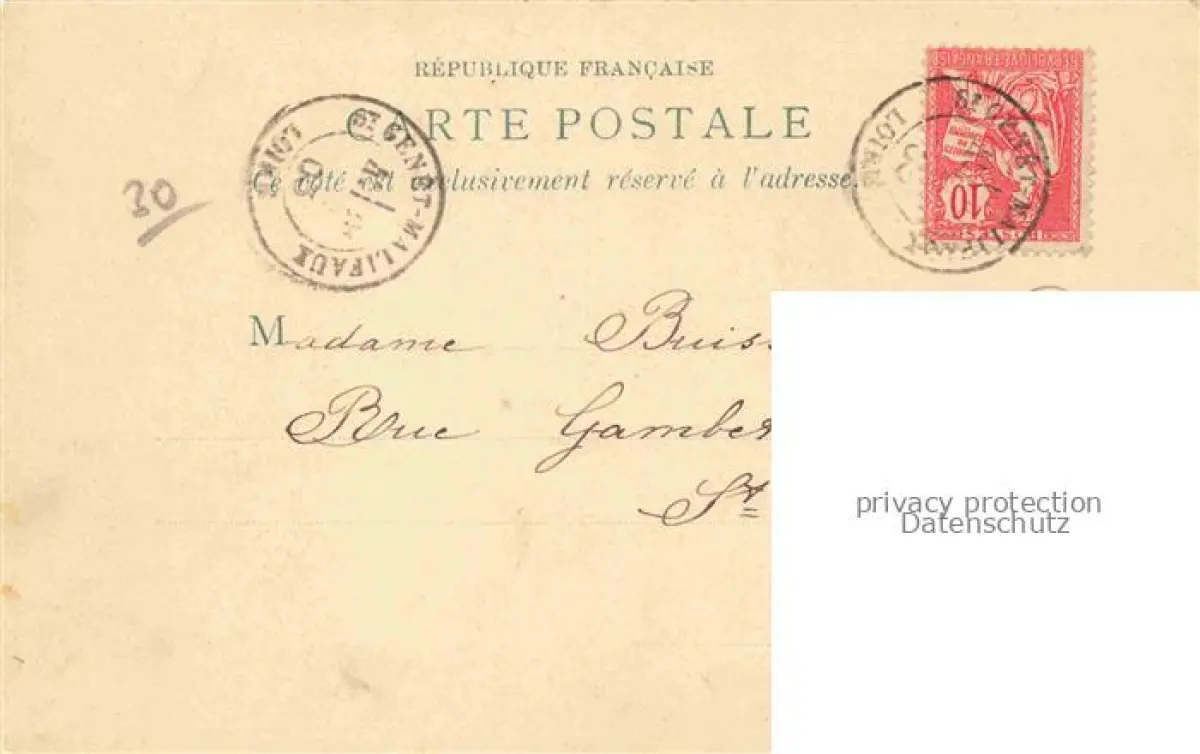 RÉPUBLIQUE FRANÇAISE
CARTE POSTALE
Ce côté est exclusivement réservé à l'adresse.
30
ST GENEST-MALIFAUX
LOIRE
ST GENEST-MALIFAUX
LOIRE
RÉPUBLIQUE FRANÇAISE
10
POSTES
Madame Buiss
Rue Gambet
St
privacy protection
Datenschutz